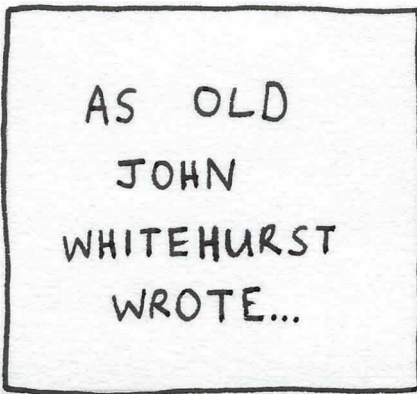 AS OLD
JOHN
WHITEHURST
WROTE...